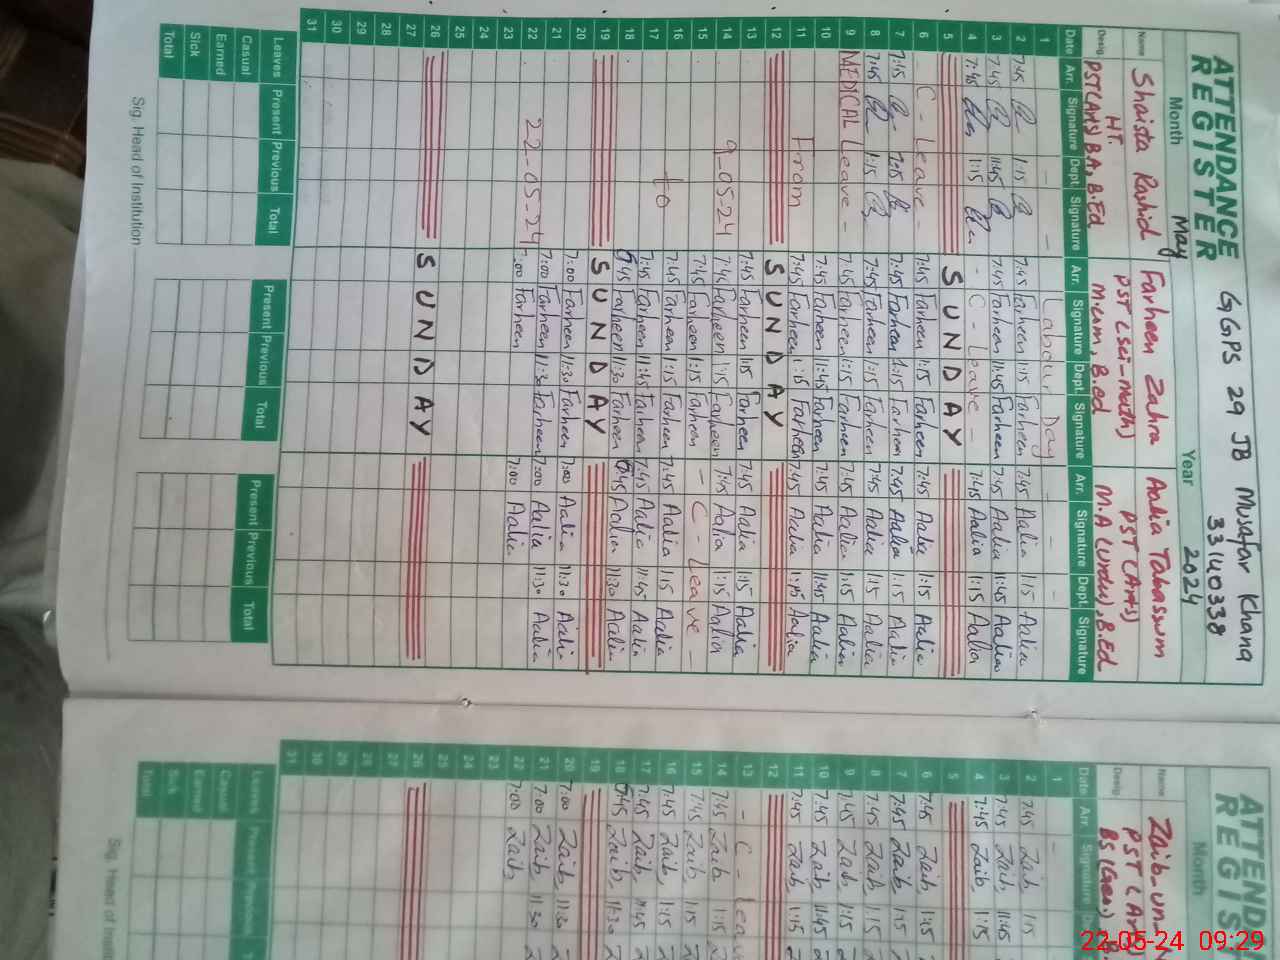 ATTENDANCE REGISTER
GGPS 29 JB Musafar Khana
33140338
Month May Year 2024
Name Shaista Rashid Farheen Zahra Aalia Tabassum
Desig HT. PST(Arts) B.A, B.Ed PST (Sci-math) M.com, B.ed PST (Arts) M.A (Urdu), B.Ed
Date Arr. Signature Dept. Signature Arr. Signature Dept. Signature Arr. Signature Dept. Signature
1 - - Labour Day - - -
2 7:45 1:15 7:45 Farheen 1:15 Farheen 7:45 Aalia 1:15 Aalia
3 7:45 11:45 7:45 Farheen 11:45 Farheen 7:45 Aalia 11:45 Aalia
4 7:45 1:15 - C - Leave - 7:45 Aalia 1:15 Aalia
5 SUNDAY
6 C - Leave - 7:45 Farheen 1:15 Farheen 7:45 Aalia 1:15 Aalia
7 7:45 1:15 7:45 Farheen 1:15 Farheen 7:45 Aalia 1:15 Aalia
8 7:45 1:15 7:45 Farheen 1:15 Farheen 7:45 Aalia 1:15 Aalia
9 MEDICAL Leave - 7:45 Farheen 1:15 Farheen 7:45 Aalia 1:15 Aalia
10 7:45 Farheen 11:45 Farheen 7:45 Aalia 11:45 Aalia
11 From 7:45 Farheen 1:15 Farheen 7:45 Aalia 1:15 Aalia
12 SUNDAY
13 7:45 Farheen 1:15 Farheen 7:45 Aalia 1:15 Aalia
14 9-05-24 7:45 Farheen 1:15 Farheen 7:45 Aalia 1:15 Aalia
15 7:45 Farheen 1:15 Farheen - C - Leave -
16 7:45 Farheen 1:15 Farheen 7:45 Aalia 1:15 Aalia
17 to 7:45 Farheen 11:45 Farheen 7:45 Aalia 11:45 Aalia
18 6:45 Farheen 11:30 Farheen 6:45 Aalia 11:30 Aalia
19 SUNDAY
20 7:00 Farheen 11:30 Farheen 7:00 Aalia 11:30 Aalia
21 7:00 Farheen 11:30 Farheen 7:00 Aalia 11:30 Aalia
22 22-05-24 7:00 Farheen 7:00 Aalia
23
24
25
26 SUNDAY
27
28
29
30
31
Leaves Present Previous Total Present Previous Total Present Previous Total
Casual
Earned
Sick
Total
Sig. Head of Institution
ATTEND
REGIS
Month
Name Zaib-un-N
Desig PST (Ar
Date Arr. Signature
1 -
2 7:45 Zaib 1:15
3 7:45 Zaib 11:45
4 7:45 Zaib 1:15
5
6 7:45 Zaib 1:15
7 7:45 Zaib 1:15
8 7:45 Zaib 1:15
9 7:45 Zaib 1:15
10 7:45 Zaib 11:45
11 7:45 Zaib 1:15
12
13 - C - Leav
14 7:45 Zaib 1:15
15 7:45 Zaib 1:15
16 7:45 Zaib 1:15
17 7:45 Zaib 11:45
18 6:45 Zaib 11:30
19
20 7:00 Zaib 11:30
21 7:00 Zaib 11:30
22 7:00 Zaib
23
24
25
26
27
28
29
30
31
Leaves Present Previous
Casual
Earned
Sick
Total
Sig. Head of Instit
22-05-24 09:29